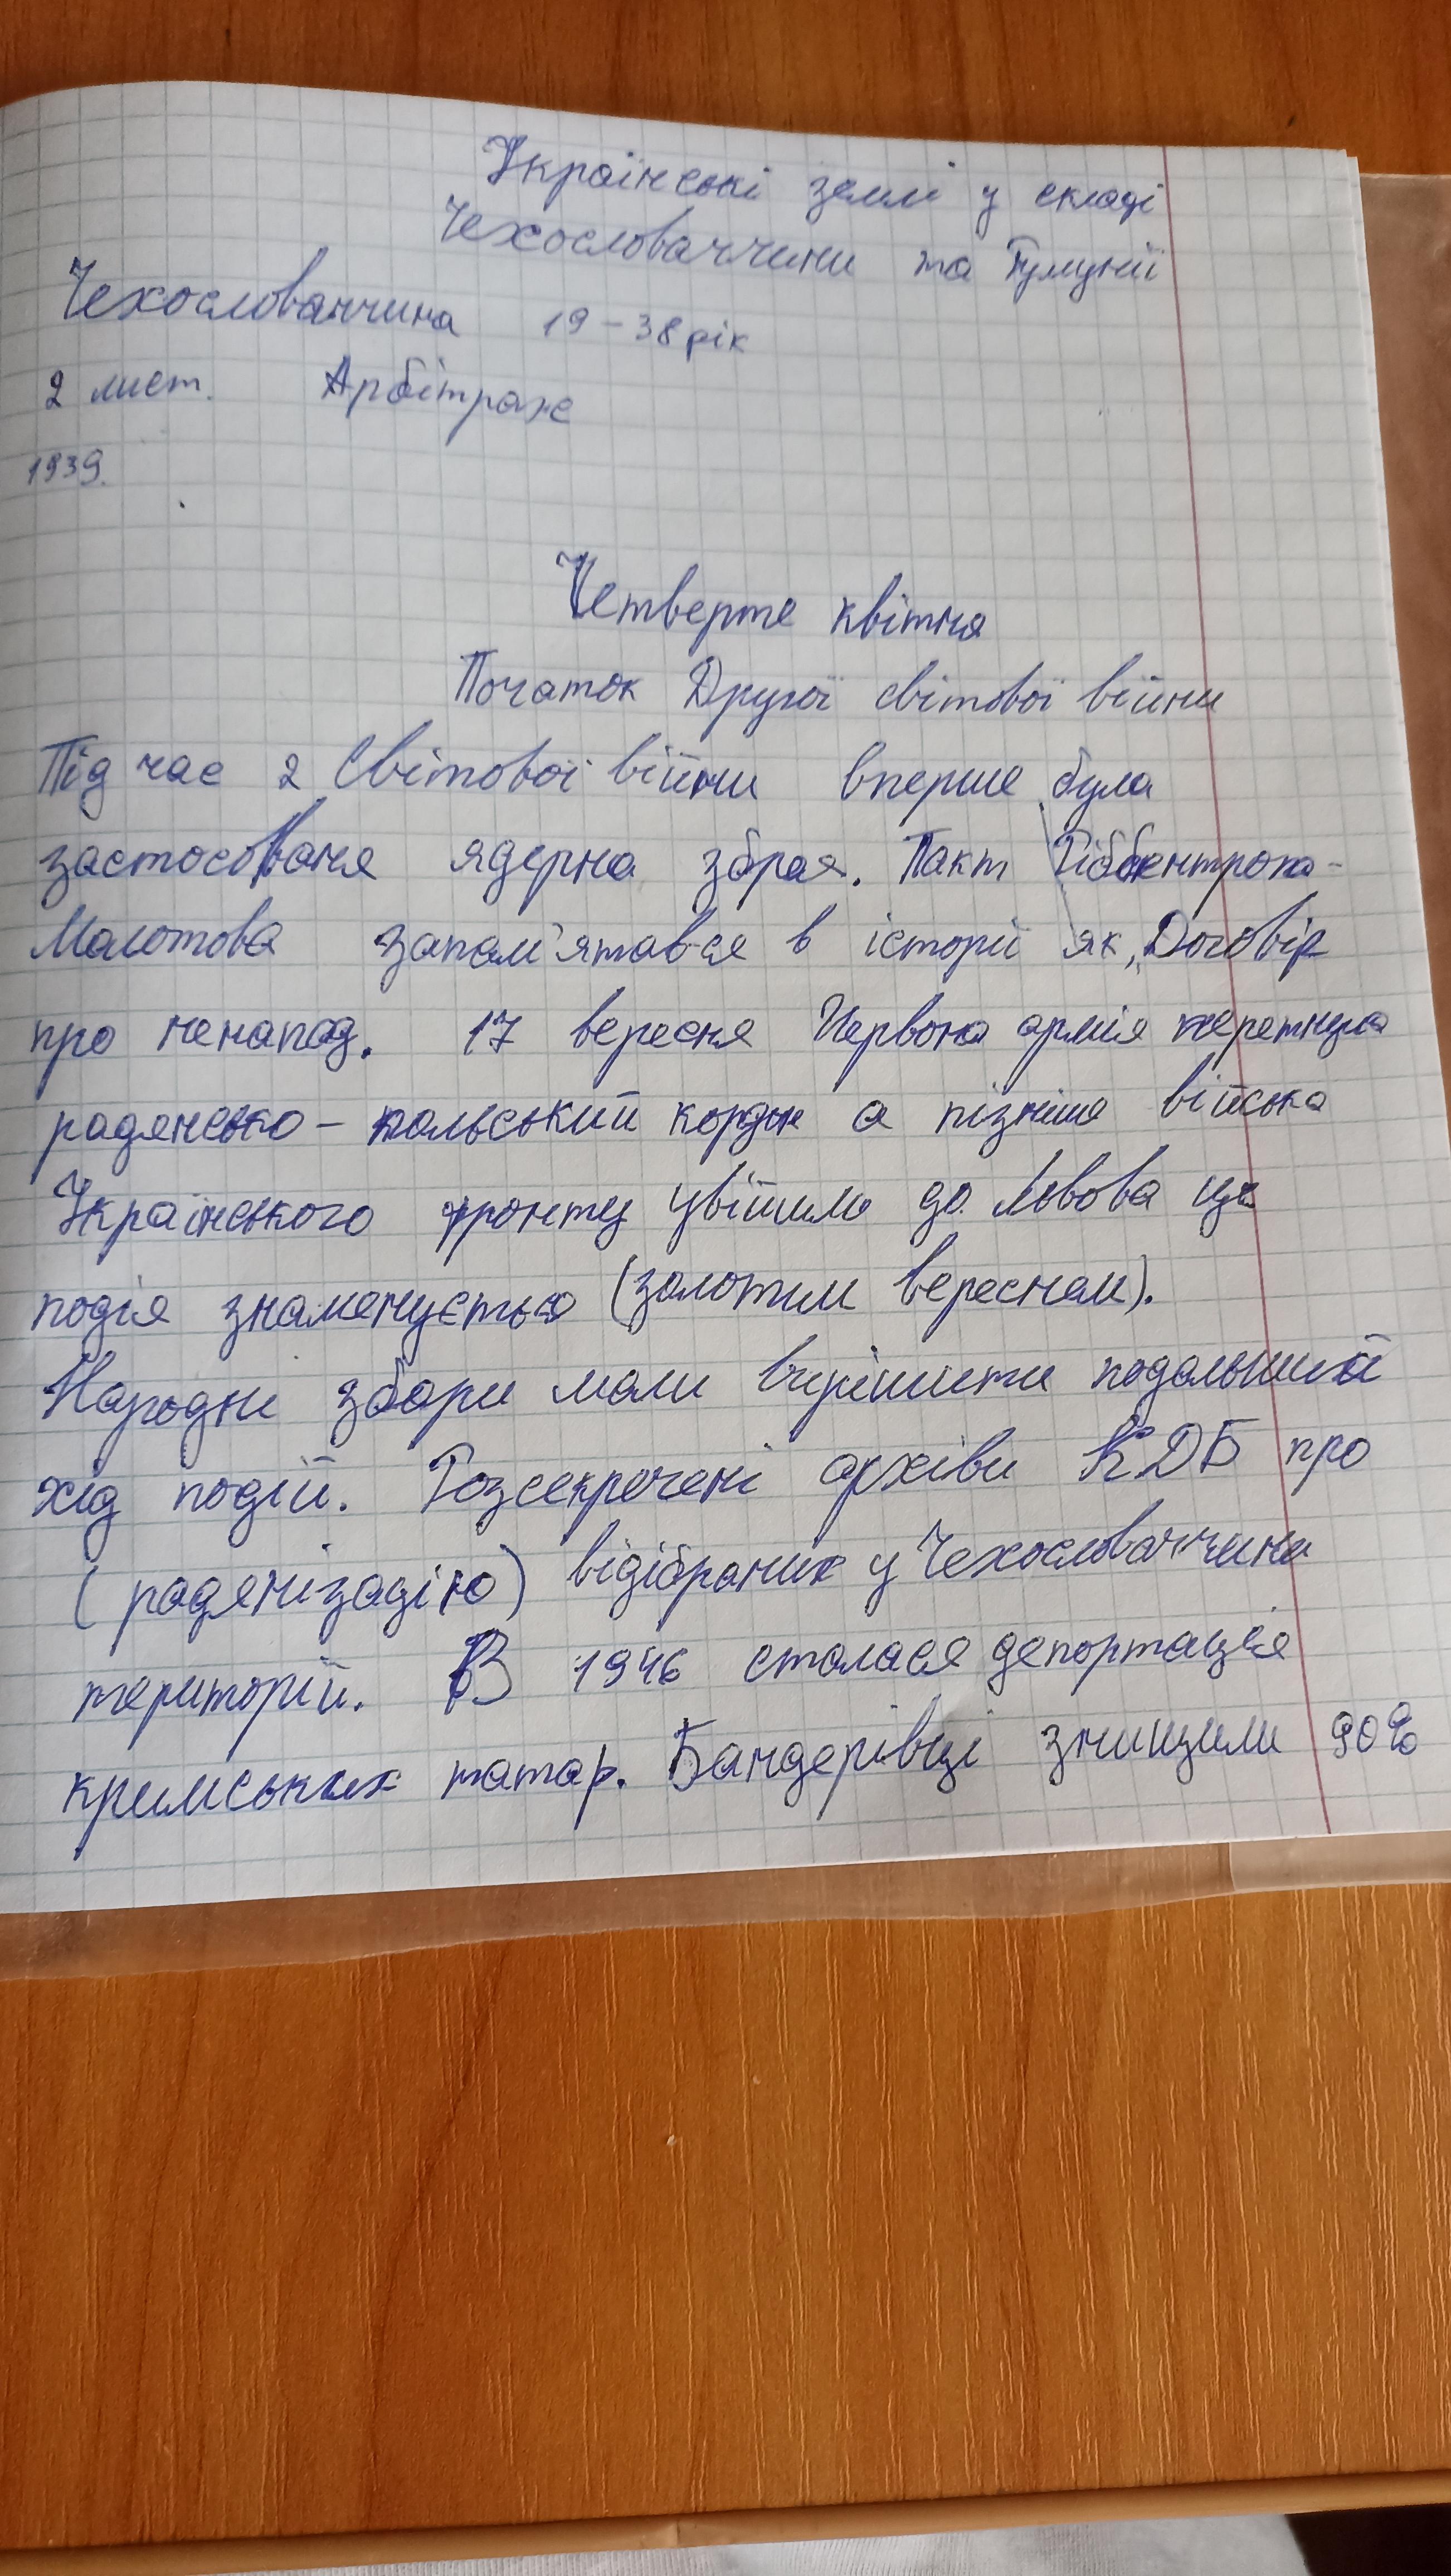 Українські землі у складі
Чехословаччини та Румунії
Чехословаччина 19-38 рік
2 лист. Арбітраж
1939.
Четверте квітня
Початок Другої світової війни
Під час 2 Світової війни вперше була
застосованя ядерна зброя. Пакт Ріббентропа-
Молотова запам'ятався в історії як „Договір
про ненапад. 17 вересня Червона армія перетнула
радянсько-польський кордон а пізніше війська
Українського фронту увійшли до Львова ця
подія знаменується (золотим вереснем).
Народні збори мали вирішити подальший
хід подій. Розсекречені архіви КДБ про
(радянізацію) відібраних у Чехословаччини
територій. В 1946 сталася депортація
кримських татар. Бандерівці знищили 90%